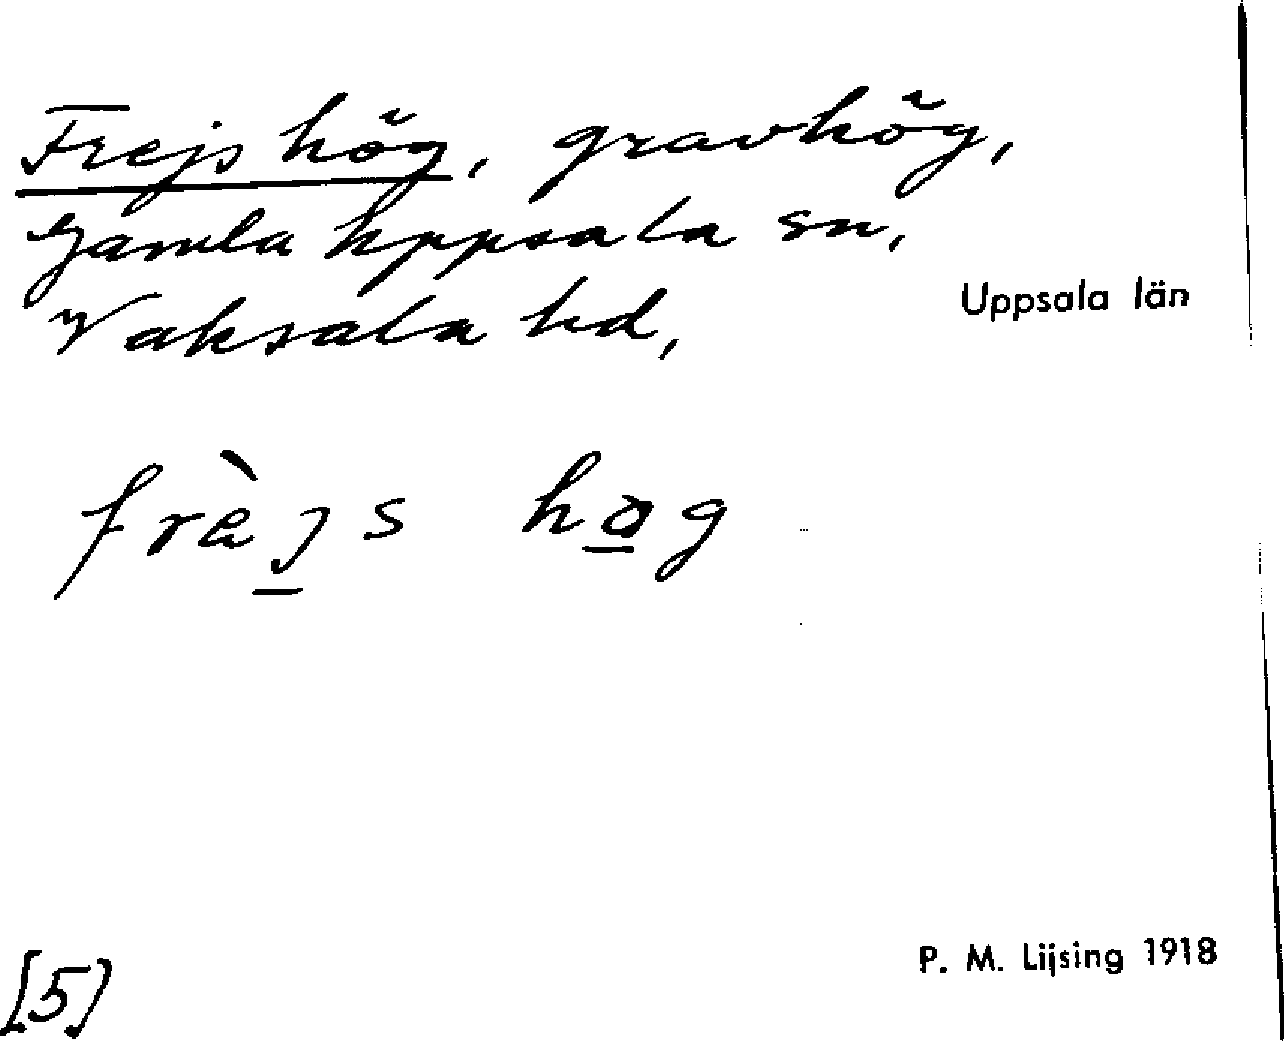 Frejs hög, gravhög,
Gamla Uppsala sn,
Vaksala hd,
Uppsala län
frèj̲s ho̲g
[5]
P. M. Lijsing 1918